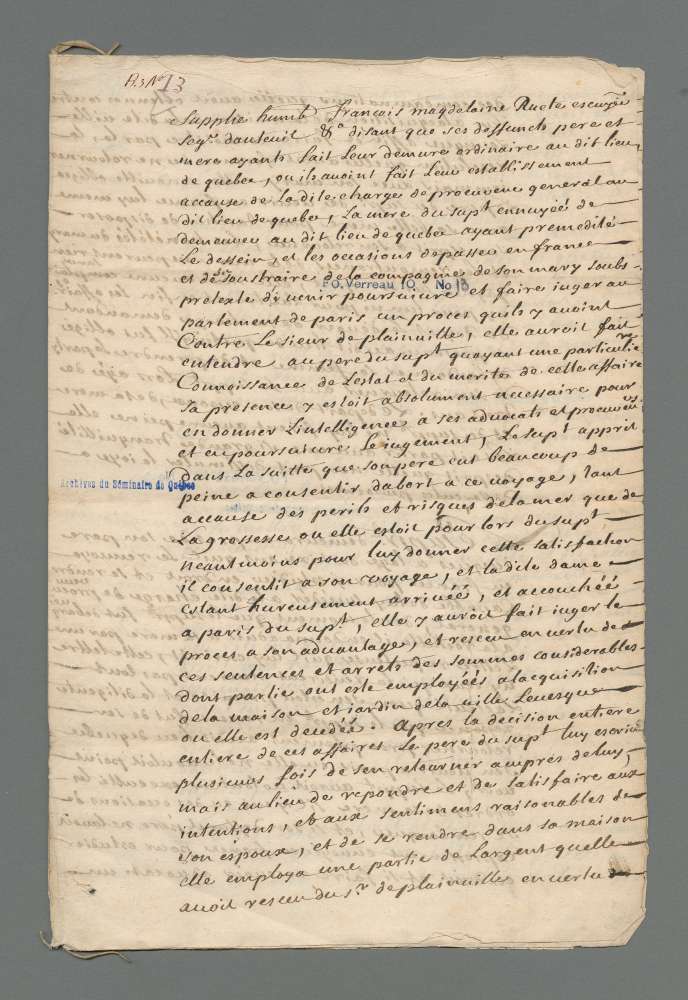 A3 No 13
Supplie humb. François magdelaine Ruete escuyer
Seigr. dauteuil &a disant que ses deffuncts pere et
mere ayants fait Leur demeure ordinaire au dit lieu
de quebec, ou ils avoint fait Leur establissement
acause de La dite charge de procureur general au
dit lieu de quebec, La mere du supt. ennuyée de
demeurer au dit lieu de quebec ayant premedité
Le dessein, et les occasions de passer en france
et de soustraire de la compagnie de son mary soubs
pretexte dy venir poursuivre et faire iuger au
FO. Verreau 10 No 13
parlement de paris un proces quils y avoint
Contre Le sieur de plainville, elle auroit fait
entendre au pere du supt. quayant une particuliere
Connoissance de Lestat et du merite de cette affaire
sa presence y estoit absolument necessaire pour
en donner Lintelligence a ses advocats et procureurs
et en poursuivre Le iugement, Le supt. apprit
dans La suitte que son pere eut beaucoup de
Archives du Séminaire de Québec
peine a consentir dabort a ce voyage, tant
acause des perils et risques de la mer que de
La grossesse ou elle estoit pour lors du supt.
neantmoins pour luy donner cette satisfaction
il consentit a son voyage, et la dite dame
estant hureusement arrivéé, et accouchéé
a paris du supt., elle y auroit fait iuger le
proces a son advantage, et receu en vertu de
ces sentences et arrets des sommes considerables
dont partie ont este employéés a lacquisition
de la maison et iardin de la ville Levesque
ou elle est decedéé. Apres la decision entiere
entiere de ces affaires Le pere du supt. luy escrivit
plusieurs fois de sen retourner aupres de luy,
mais au lieu de repondre et de satisfaire aux
intentions, et aux sentimens raisonables de
son espoux, et de se rendre dans sa maison
elle employa une partie de Largent quelle
avoit receu du sr. de plainville en vertu de